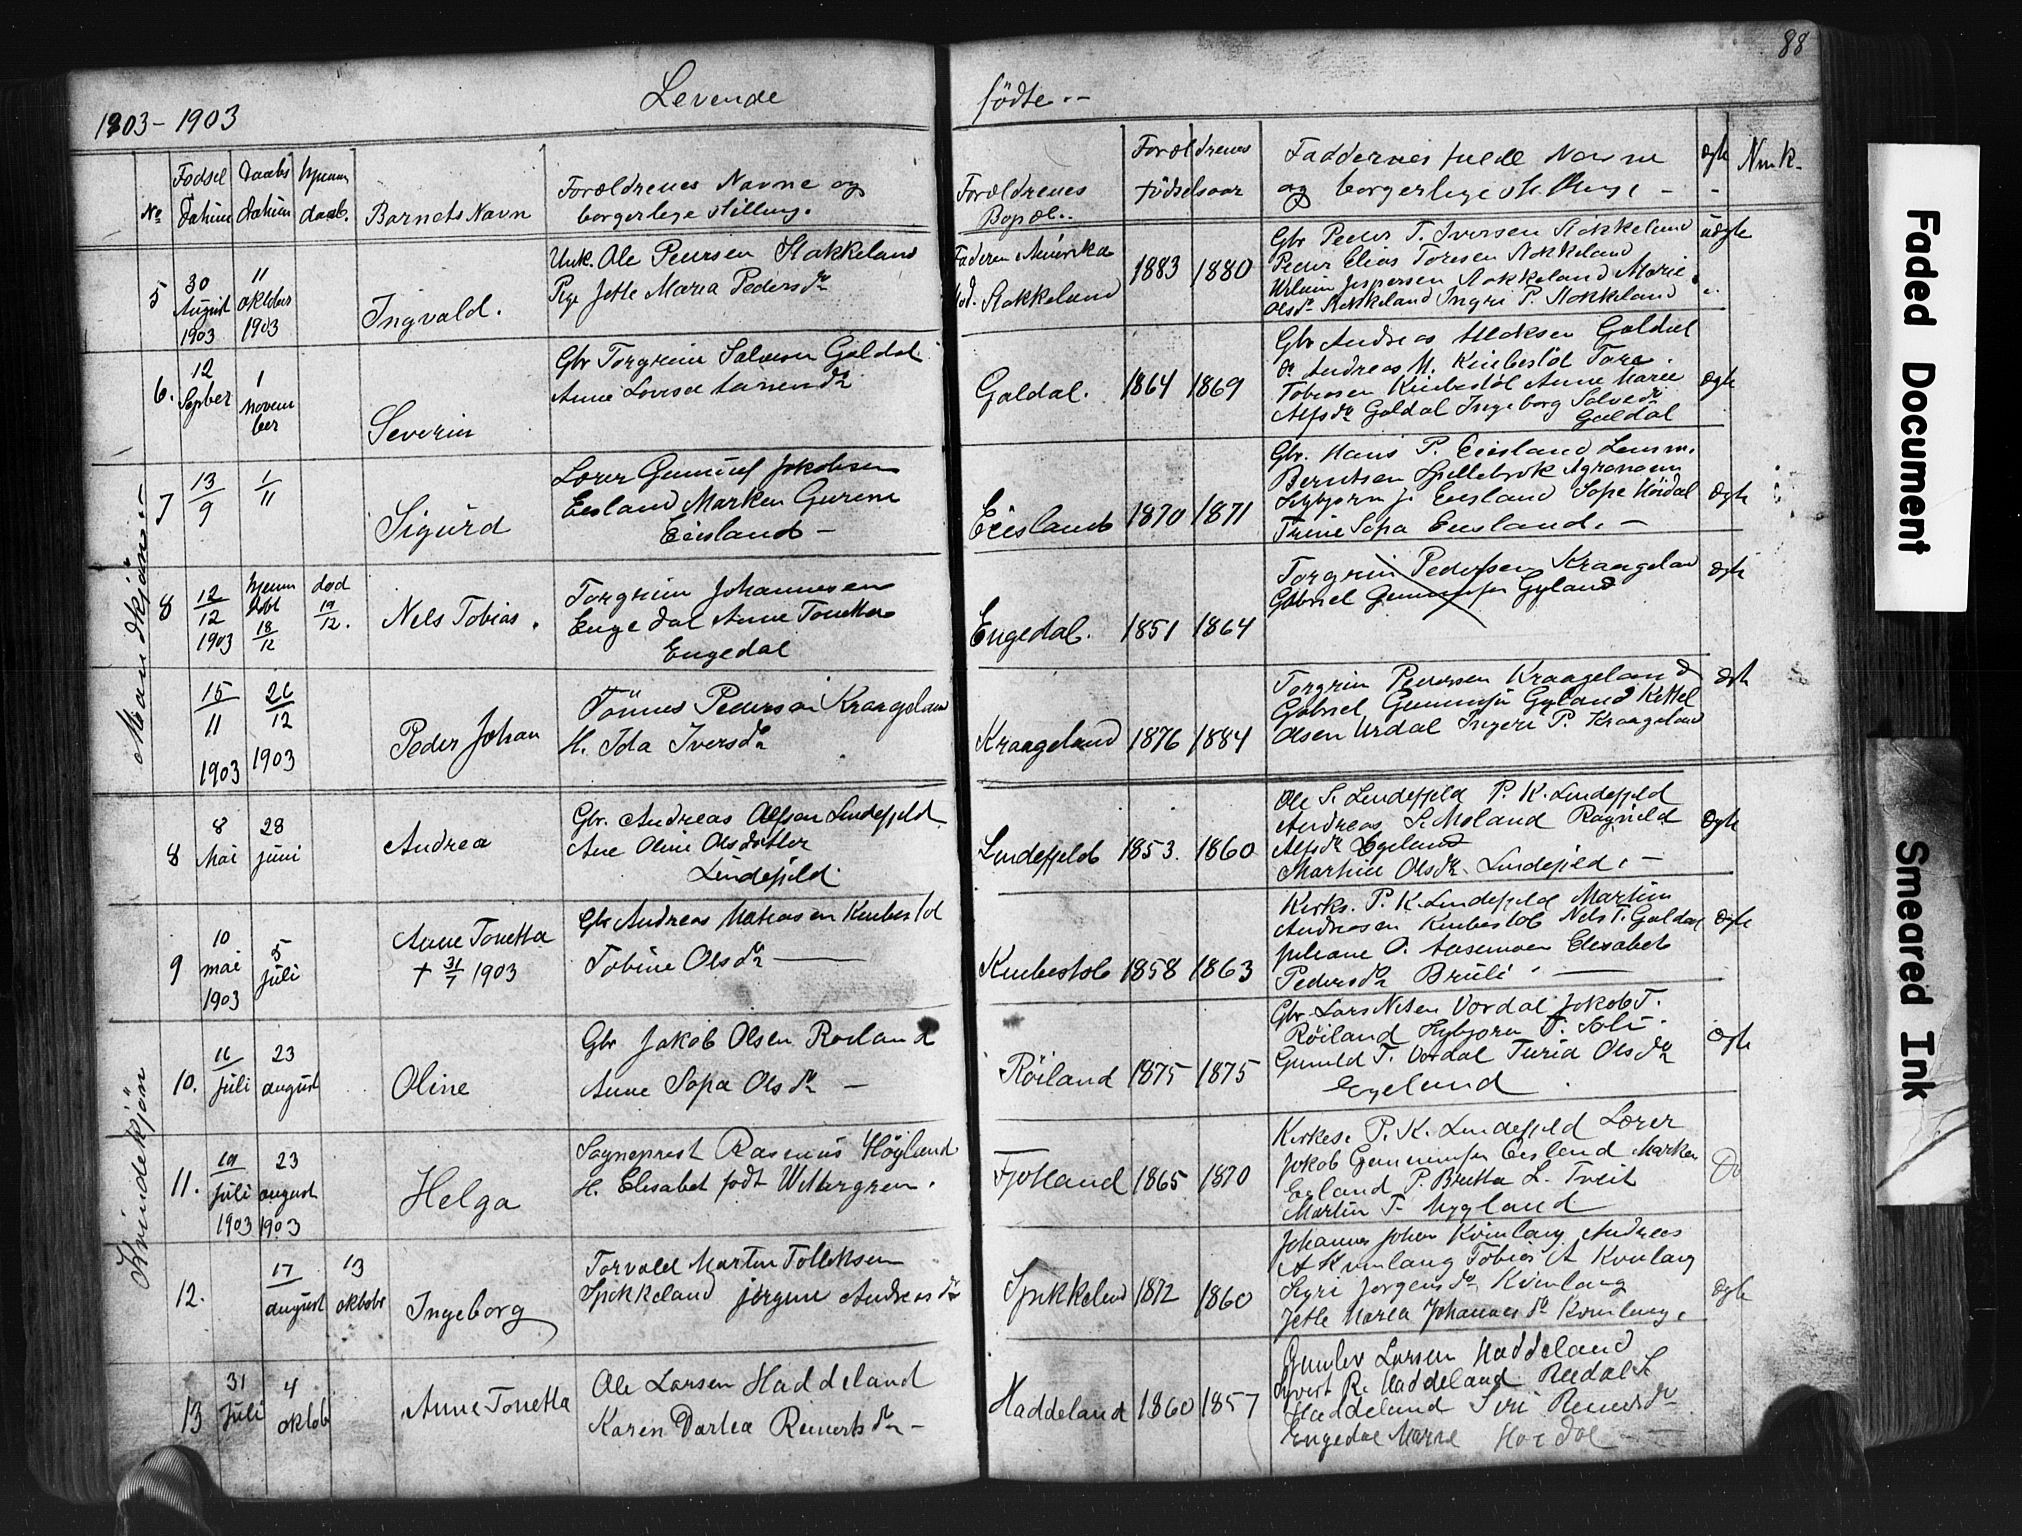 88
1903-1903
Levende
fødte.-
No
Fødsel Datum
Daabs Datum
hjemm daab.
Barnets Navn
Forældrenes Navne og
borgerlige stilling.
Forældrenes
Bopæl.
Forældrenes
fødselsaar
Faddernes fulde Navne
og borgerlige stilling -
ægte
Nmk.
Mandkjøn
5
30 August 1903
11 oktober 1903
Ingvald.
Unk. Ole Peersen Stakkeland
Pge Jetle Maria Pedersdr
Faderen Amerika
Mod. Stokkeland
1883 1880
Gbr Peder T. Iversen Stokkeland
Peder Elias Toresen Stokkeland
Jespersen Stokkeland Marie
Olsdr Stokkeland Ingri P. Stokkeland
uægte
6.
12 Sepber
1 novem ber
Severin
Gbr Torgrim Salvesen Galdal
Anne Lovise
Galdal.
1864 1869
Gbr Andreas Galdal
do Andreas M. Knibestøl Tore
Tobiasen Knibestøl Anne Marie
Alfsdr Galdal Ingeborg Salvesdr
Galdal
ægte
7
13/9
1/11
Sigurd
Lærer Gunuf Jakobsen
Eesland Marken Gurine
Eeisland -
Eeisland
1870 1871
Gbr. Hans P. Eeisland Lensm.
Berntsen Spillebrok Agronom
Eeisland Sope Høidal
Trine Sopa Eeisland. -
ægte
8
12/12 1903
hjemm døbt 18/12
død 19/12.
Nels Tobias.
Torgrim Johannesen
Engedal Anne Tonetta
Engedal
Engedal.
1851 1864
Torgrim Pedersen Kraageland
Gabriel Gunnufsen Gyland
ægte
15/11 1903
26/12 1903
Peder Johan
Tönnes Pedersen Kraageland
H. Ida Iversdr
Kraageland
1876 1884
Torgrim Pedersen Kraageland
Gabriel Gyland Kettel
Olsen Urdal Ingeri P. Kraageland
ægte
Kvindekjön
8
8 Mai
28 juni
Andrea
Gbr. Andreas Alfson Lindefjeld
Ane Oline Olsdatter
Lindefjeld
Lindefjeld
1853. 1860
Ole S. Lindefjeld P. K. Lindefjeld
Andreas S. Moland Ragnild
Alfsdr Egeland
Martine Olsdr. Lindefjeld. -
ægte
9
10 mai 1903
5 juli
Anne Tonetta
† 31/7 1903
Gbr Andreas Matiasen Knibestøl
Tobine Olsdr
Knibestøl
1858 1863
Kirks. P. K. Lindefjeld Martin
Andreasen Knibestøl Nels T. Galdal
Juliane O. Aasemoen Elisabet
Pedersdr Bruli.
ægte
10.
16 juli
23 august
Oline
Gbr Jakob Olsen Røiland
Anne Sopa Olsdr -
Røiland
1875 1875
Gbr. Lars Nelsen Vordal Jakob T.
Røiland T. Soli.
Gunuld T. Vordal Turid Olsdr
Egeland
ægte
11.
19 Juli 1903
23 august 1903
Helga
Sogneprest Rasmus Høyland
H. Elisabet født Wettergren.
Fjotland
1865 1870
Kirkes. P. K. Lindefjeld Lærer
Jakob Gunnufsen Eesland Marken
Eesland P. Britta L. Tveit
Martin T. Mygland
Do
12.
17 august
13 oktobr
Ingeborg
Torvald Martin Tolleksen
Spikkeland Jørgine Andreasdr
Spikkeland
1872 1860
Johannes Johan Kvinlaug Andreas
A Kvinlaug Tobias A Kvinlaug
Syri Jørgensdr Kvinlaug
Jetle Maria Johannesdr Kvinlaug.
ægte
13
31 Juli
4 oktob
Anne Tonetta
Ole Larsen Haddeland
Karen Dartea Reinertsdr -
Haddeland
1860 1857
Gunlev Larsen Haddeland
Syvert R. Haddeland Reidal S.
Haddeland Siri Reinersdr
Engedal Marie Høidal -
Faded Document
Smeared Ink